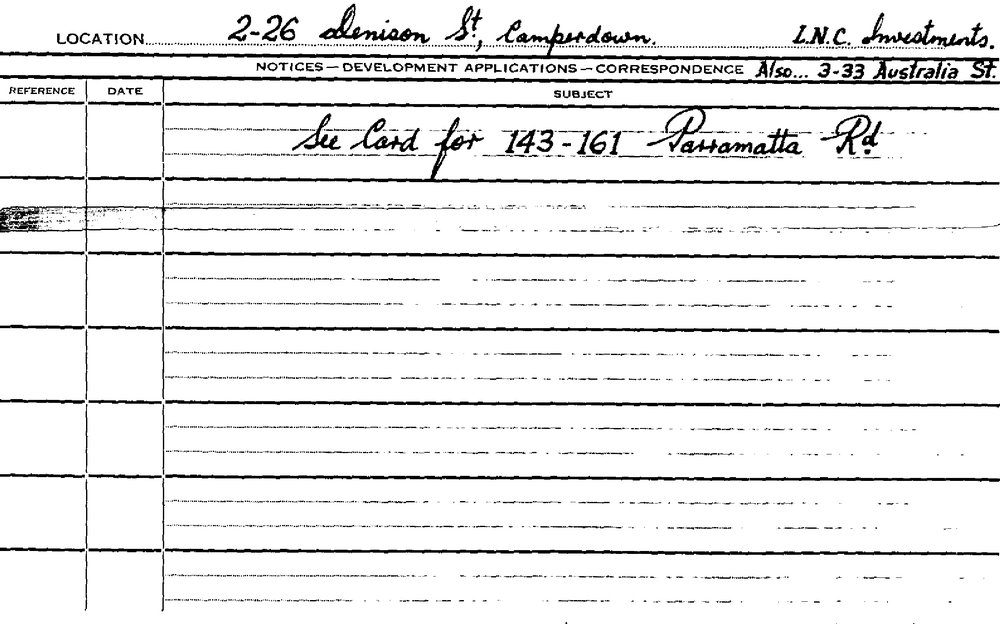 LOCATION 2-26 Denison St, Camperdown. I.N.C. Investments.
NOTICES — DEVELOPMENT APPLICATIONS — CORRESPONDENCE Also... 3-33 Australia St.
REFERENCE DATE SUBJECT
See Card for 143-161 Parramatta Rd